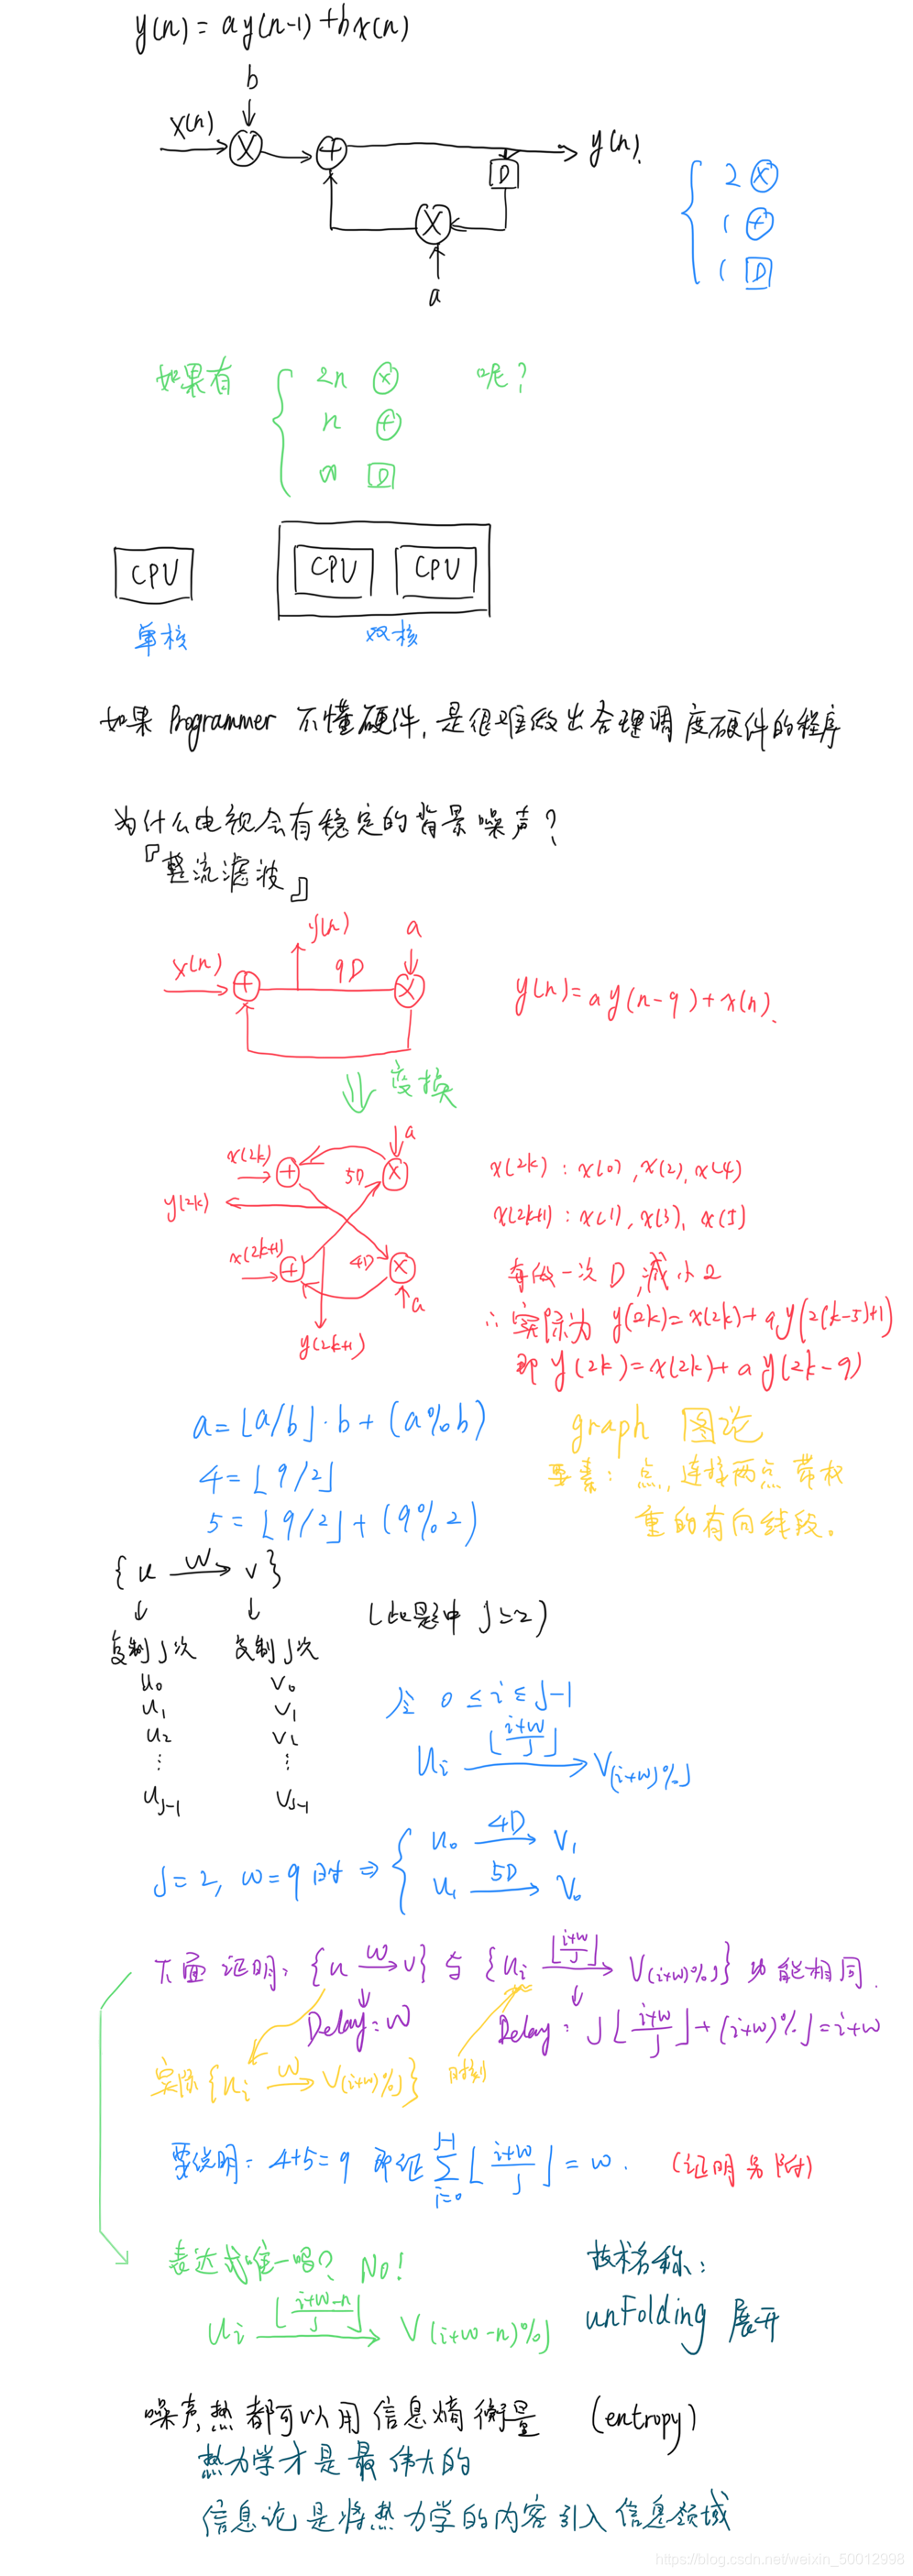 y(n) = ay(n-1)+bx(n)
b
x(n) × + y(n).
D
×
a
2 ×
1 +
1 D
如果有 2n × 呢?
n +
n D
CPU CPU CPU
单核 双核
如果 Programmer 不懂硬件, 是很难做出合理调度硬件的程序
为什么电视会有稳定的背景噪声?
『整流滤波』
y(n) a
x(n) + 9D ×
y(n)=ay(n-9)+x(n).
变换
a
x(2k) + 5D ×
y(2k)
x(2k+1) + 4D ×
a
y(2k+1)
x(2k) : x(0), x(2), x(4)
x(2k+1) : x(1), x(3), x(5)
每做一次 D, 减小2
∴ 实际为 y(2k)=x(2k)+ay(2(k-5)+1)
即 y(2k)=x(2k)+ay(2k-9)
a=⌊a/b⌋·b+(a%b)
4=⌊9/2⌋
5=⌊9/2⌋+(9%2)
graph 图论
要素: 点, 连接两点带权
重的有向线段。
{u —w→ v}
↓ ↓
复制J次 复制J次
u₀ v₀
u₁ v₁
u₂ v₂
⋮ ⋮
u_{J-1} v_{J-1}
(此题中 J=2)
令 0 ≤ i ≤ J-1
u_i —⌊(i+w)/J⌋→ v_{(i+w)%J}
J=2, w=9 时 ⇒ { u₀ —4D→ v₁
u₁ —5D→ v₀
下面证明: {u —w→ v} 与 {u_i —⌊(i+w)/J⌋→ v_{(i+w)%J}} 功能相同.
Delay: w
Delay: J⌊(i+w)/J⌋+(i+w)%J=i+w
实际{u_i —w→ v_{(i+w)%J}} 时刻
要说明: 4+5=9 即证 ∑_{i=0}^{J-1} ⌊(i+w)/J⌋ = w. (证明另附)
表达式唯一吗? No!
u_i —⌊(i+w-n)/J⌋→ v_{(i+w-n)%J}
技术名称:
unFolding 展开
噪声,热都可以用信息熵衡量 (entropy)
热力学才是最伟大的
信息论是将热力学的内容引入信息领域
https://blog.csdn.net/weixin_50012998